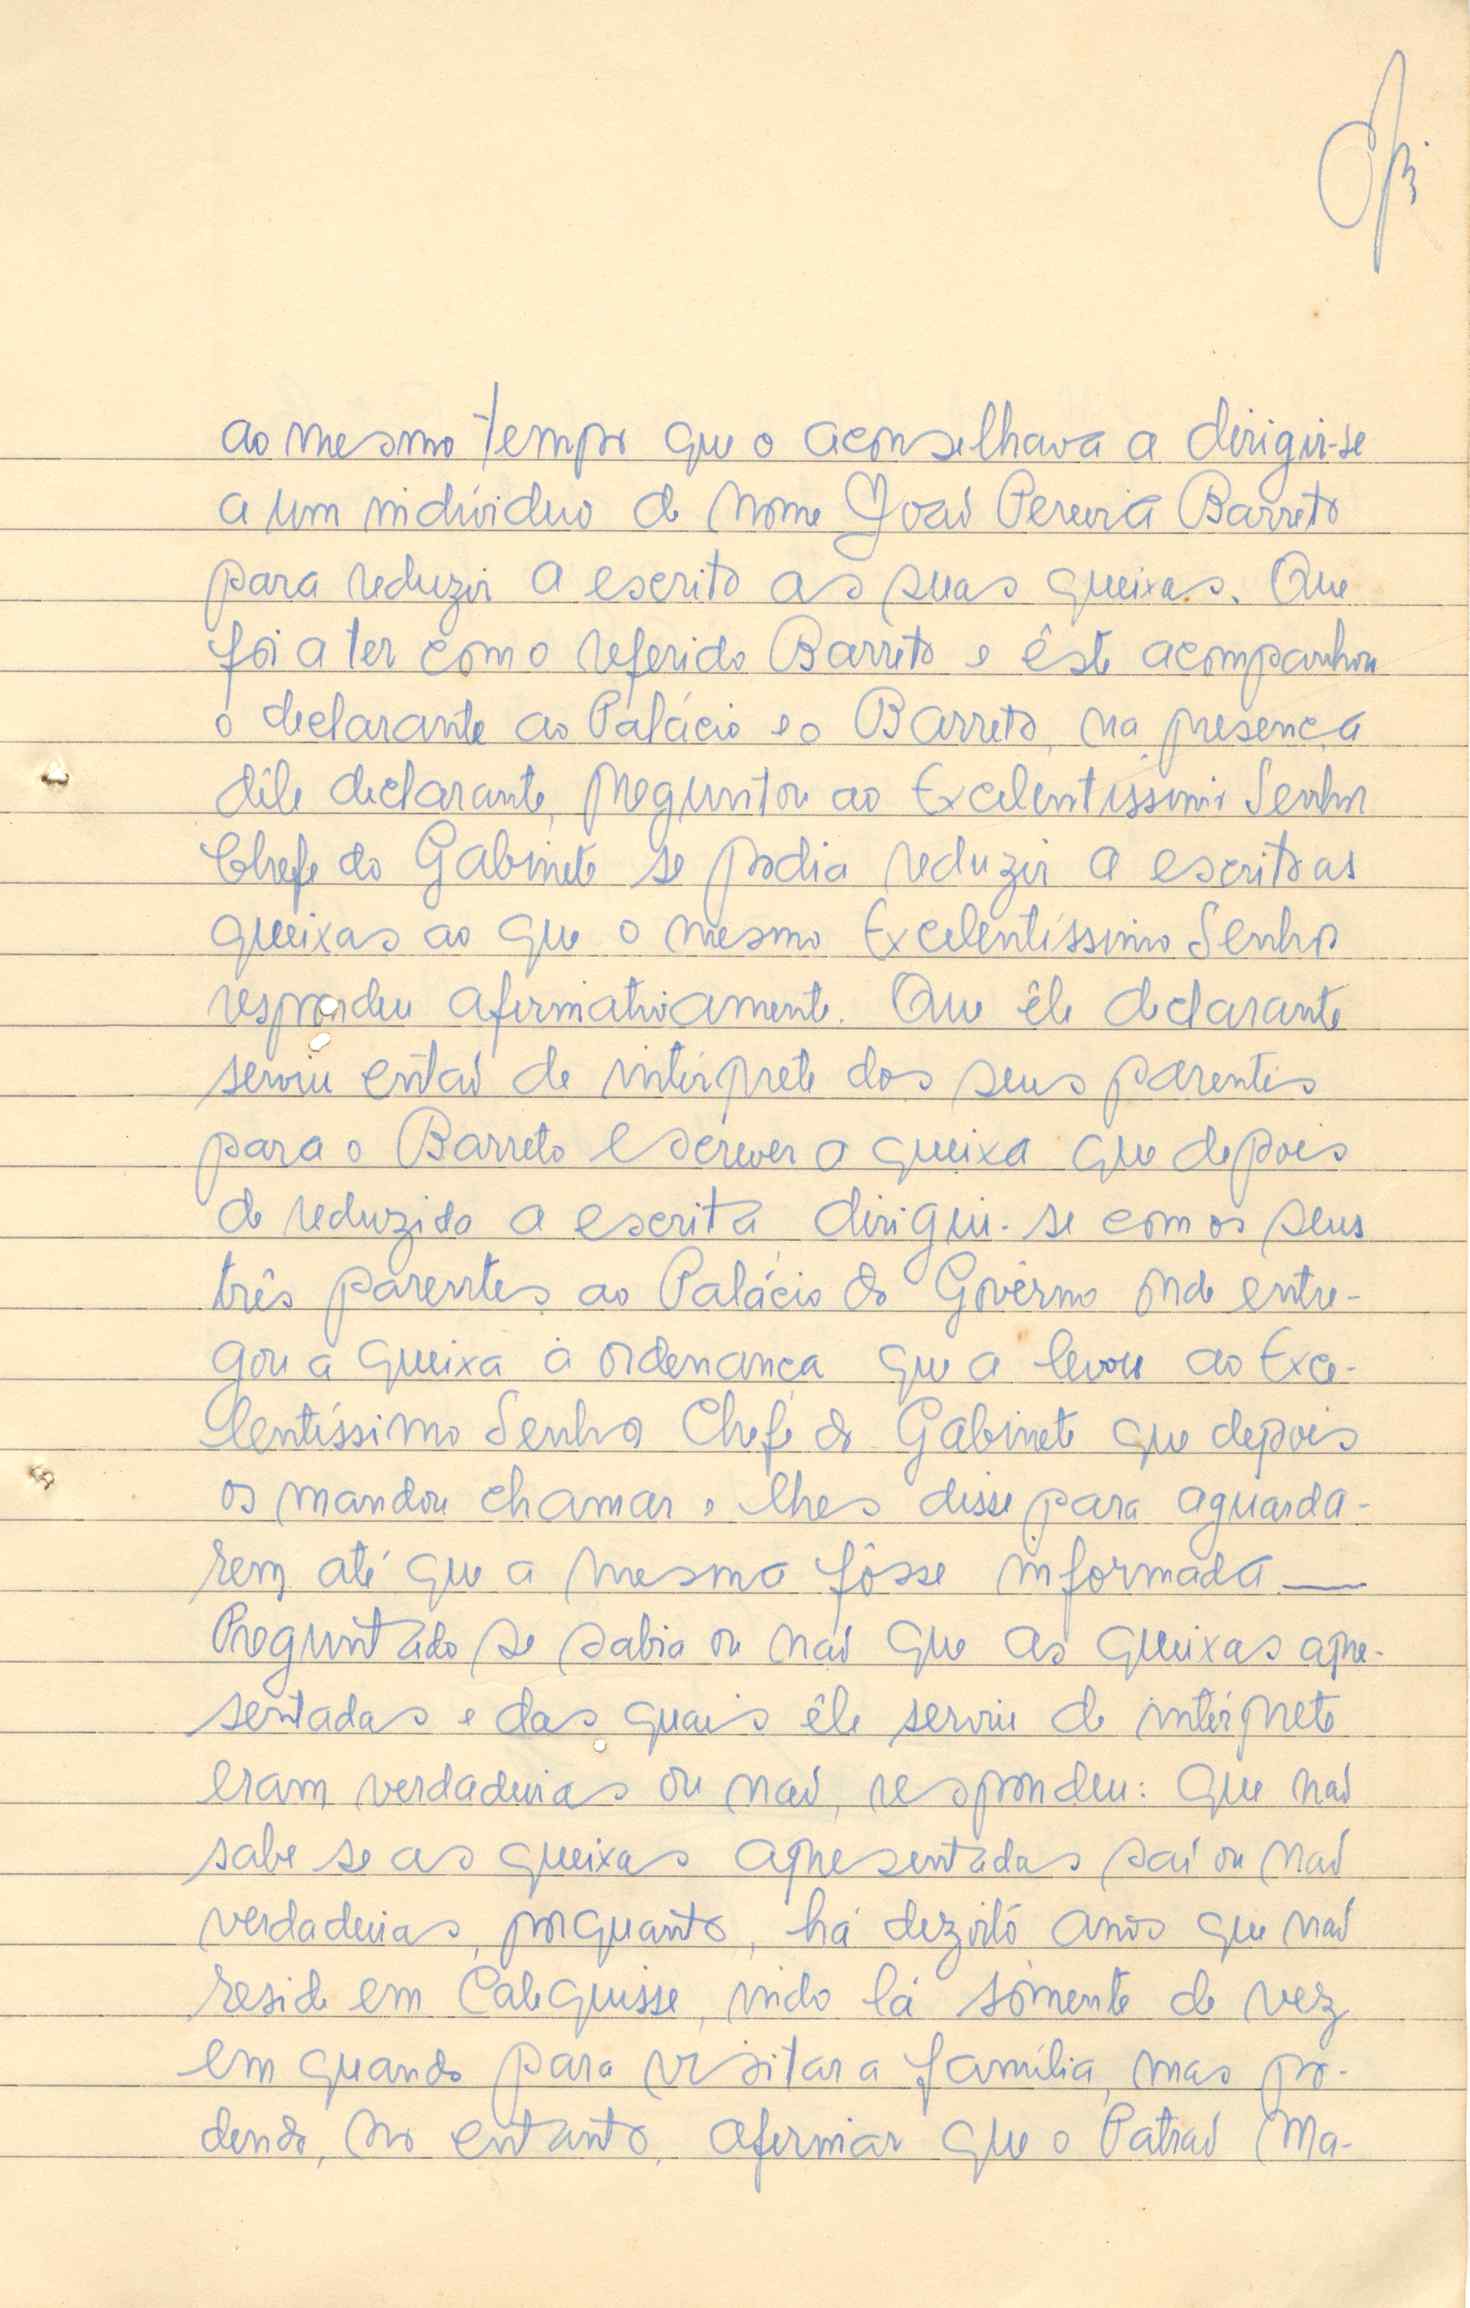 ao mesmo tempo que o aconselhava a dirigir-se
a um indivíduo de nome João Pereira Barreto
para reduzir a escrito as suas queixas. Que
foi a ter com o referido Barreto e êste acompanhou
o declarante ao Palácio e o Barreto, na presença
dêle declarante, preguntou ao Excelentíssimo Senhor
Chefe do Gabinete se podia reduzir a escrito as
queixas ao que o mesmo Excelentíssimo Senhor
respondeu afirmativamente. Que êle declarante
serviu então de intérprete dos seus parentes
para o Barreto escrever a queixa que depois
de reduzida a escrita, dirigiu-se com os seus
três parentes ao Palácio do Govêrno onde entre-
gou a queixa à ordenança que a levou ao Exce-
lentíssimo Senhor Chefe do Gabinete que depois
os mandou chamar e lhes disse para aguarda-
rem até que a mesma fôsse informada
Preguntado se sabia ou não que as queixas apre-
sentadas e das quais êle serviu de intérprete
eram verdadeiras ou não, respondeu: Que não
sabe se as queixas apresentadas são ou não
verdadeiras, porquanto, há dezoito anos que não
reside em Calequisse, indo lá sòmente de vez
em quando para visitar a família, mas po-
dendo, no entanto, afirmar que o Patrão Ma-